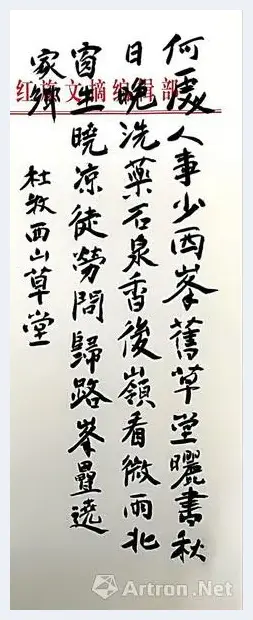 红旗文摘编辑部
何處人事少西峯舊草堂曬書秋
日晚洗藥石泉香後嶺看微雨北
窗生曉凉徒勞問歸路峯疊遶
家鄉
杜牧西山草堂
Artron.Net